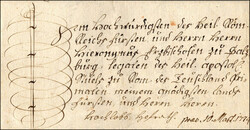 Dem Hochwürdigsten des Heil. Röm.
Reichs Fürsten, und Herrn Herrn
Hieronymus Erzbischofen zu Salz-
burg, legaten des Heil. Apostol.
Stuhls zu Rom, des Teutschlands Pri-
maten meinem gnädigsten Lands
Fürsten, und Herrn Herrn.